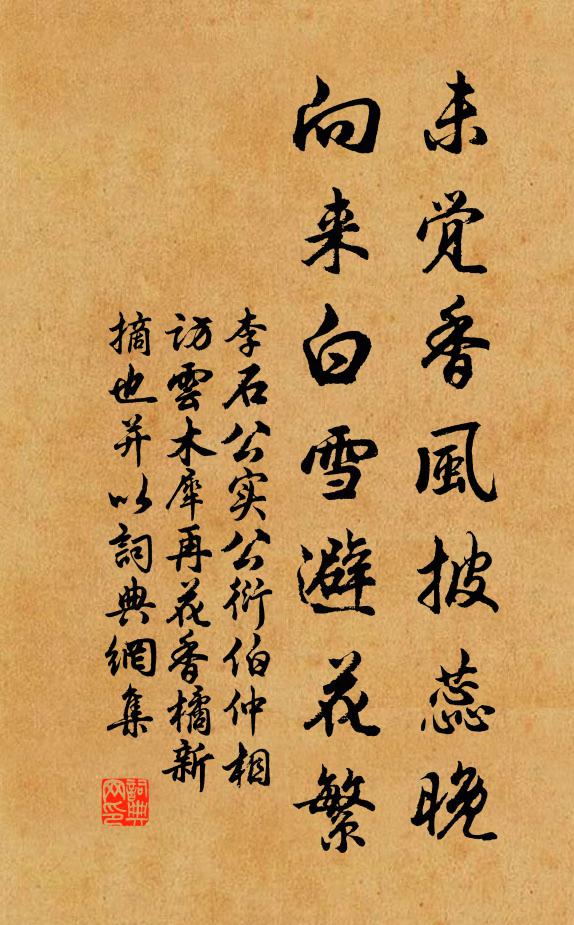 未觉香風披蕊晚
向来白雪避花繁
李石公实公衍伯仲相
访雲木犀再花香橘新
摘也并以詞典網集
詞典網印